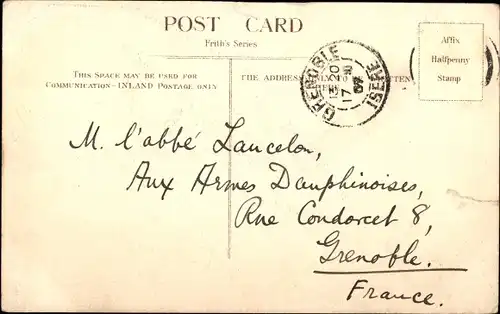 POST CARD
Frith's Series
Affix
Halfpenny
Stamp
THIS SPACE MAY BE USED FOR
COMMUNICATION - INLAND POSTAGE ONLY
THE ADDRESS
TO
TTEN
GRENOBLE
ISERE
17
M. l'abbé Lancelon,
Aux Armes Dauphinoises,
Rue Condorcet 8,
Grenoble.
France.